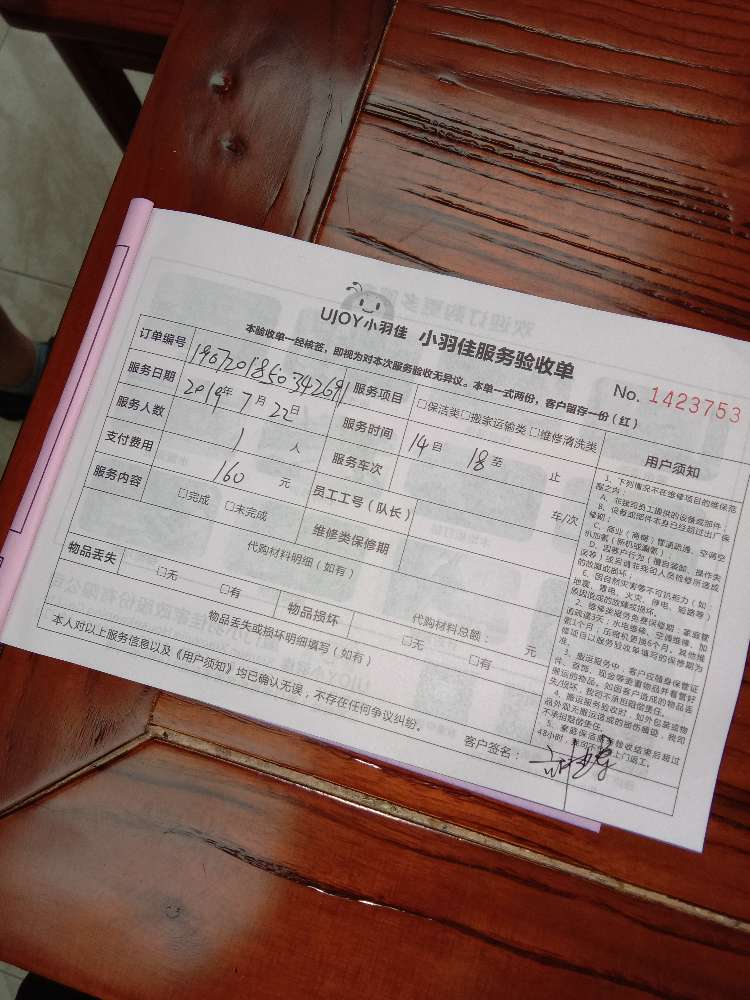 UJOY小羽佳 小羽佳服务验收单
本验收单一经核签，即视为对本次服务验收无异议。本单一式两份，客户留存一份（红）
No. 1423753
订单编号 1907201850342691 服务项目 □保洁类□搬家运输类□维修清洗类
服务日期 2019年7月22日 服务时间 14 18至 止
服务人数 1 人 服务车次 车/次
支付费用 160 元 员工工号（队长）
服务内容 □完成 □未完成 维修类保修期
代购材料明细（如有） 代购材料总额： 元
物品丢失 □无 □有 物品损坏 □无 □有
物品丢失或损坏明细填写（如有）
本人对以上服务信息以及《用户须知》均已确认无误，不存在任何争议纠纷。
客户签名：
用户须知
1、下列情况不在维修项目的维保范
围之内：
A、非我司员工提供的设备或部件；
B、设备或部件本身已经超过出厂保
修期；
C、商业（商楼）管道疏通、空调空
机加氨（新机或漏氨）
D、因客户行为（擅自装卸、操作失
误等）或后请非我司人员检修所造成
的故障或损坏；
E、因自然灾害等不可抗拒力（如：
地震、雷电、火灾、停电、短路等）
原因造成的故障或损坏。
2、维修类服务免费保修期：家庭管
道疏通3天；水电维修、空调维修、加
氨1个月，压缩机更换6个月，其他维
修项目以服务验收单填写的保修期为
准。
3、搬运服务中，客户应随身保管证
件、首饰、现金等贵重物品并看管好
搬运的物品，如因客户造成的物品丢
失/损坏，我司不承担赔偿责任。
4、搬运服务验收时，如外包装或物
品外观无搬运造成的损伤痕迹，我司
不承担赔偿责任。
5、家庭保洁 验收结束后超过
48小时，我司不 上门返工。